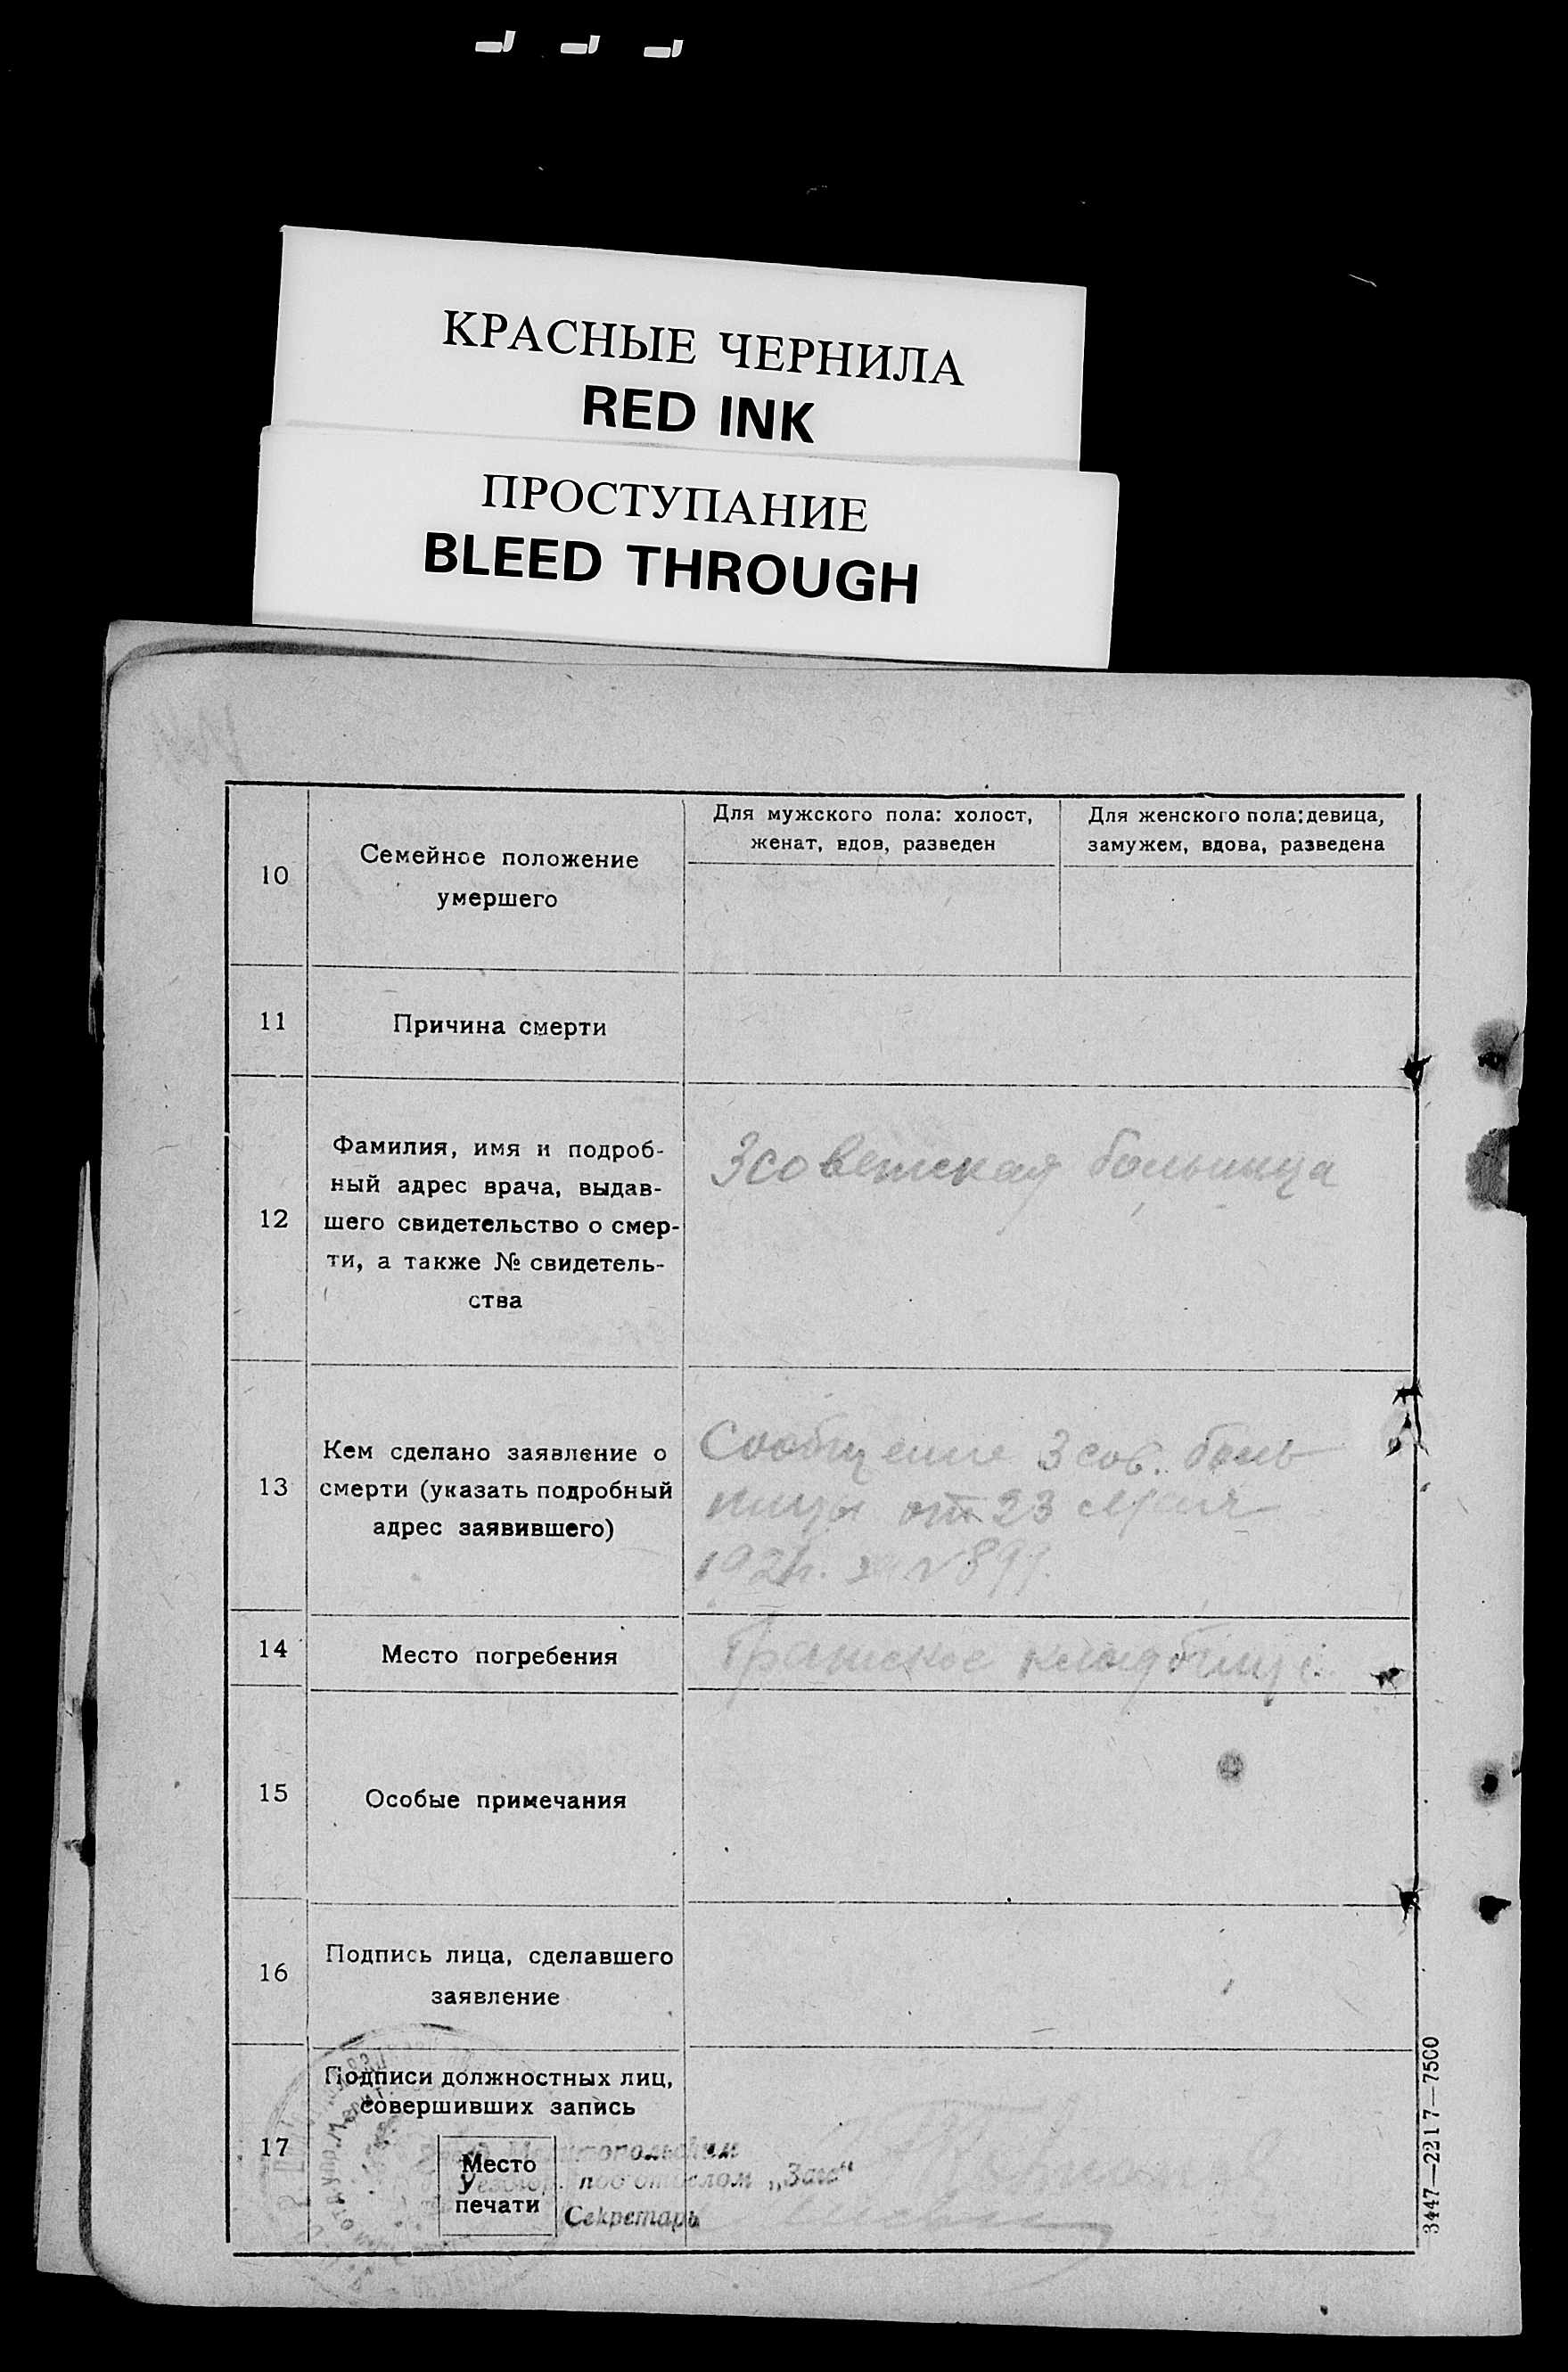 КРАСНЫЕ ЧЕРНИЛА
RED INK
ПРОСТУПАНИЕ
BLEED THROUGH
10
Семейное положение
умершего
Для мужского пола: холост,
женат, вдов, разведен
Для женского пола: девица,
замужем, вдова, разведена
11
Причина смерти
12
Фамилия, имя и подроб-
ный адрес врача, выдав-
шего свидетельство о смер-
ти, а также № свидетель-
ства
3 советская больница
13
Кем сделано заявление о
смерти (указать подробный
адрес заявившего)
Сообщение 3 сов. боль
ницы от 23 мая
192 за № 899.
14
Место погребения
кладбище
15
Особые примечания
16
Подпись лица, сделавшего
заявление
17
Подписи должностных лиц,
совершивших запись
Место
печати
подотделом „Загс“
Секретарь
3447—2217—7500